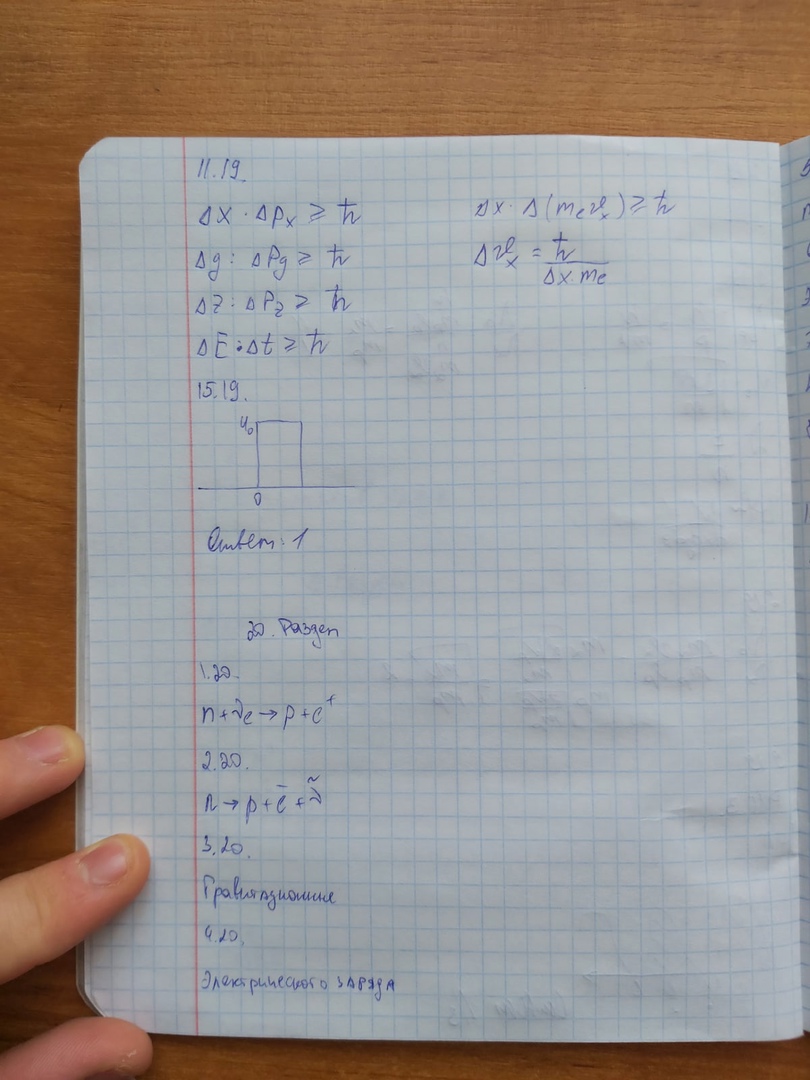 11.19.
Δx · Δpₓ ≥ ħ
Δy : ΔPy ≥ ħ
Δz : ΔPz ≥ ħ
ΔE · Δt ≥ ħ
Δx · Δ(mₑvₓ) ≥ ħ
Δvₓ = ħ / Δx mₑ
15.19.
U₀
0
Ответ: 1
20. Раздел
1.20.
n + νe → p + e⁺
2.20.
n → p + e̅ + ν̃
3.20.
Гравитационные
4.20.
Электрического заряда